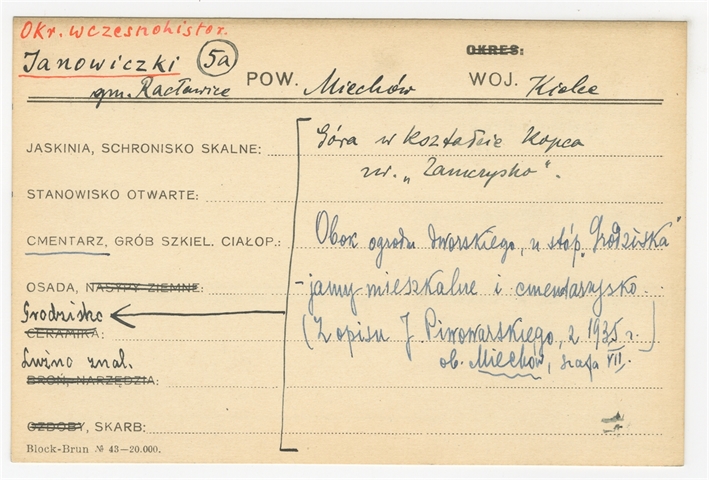 Okr. wczesnohistor.
Janowiczki 5a
gm. Racławice POW. Miechów
OKRES:
WOJ. Kielce
JASKINIA, SCHRONISKO SKALNE: Góra w kształcie kopca
zw. "Zamczysko".
STANOWISKO OTWARTE:
CMENTARZ, GRÓB SZKIEL. CIAŁOP.: Obok ogrodu dworskiego, u stóp "Grodziska"
OSADA, NASYPY ZIEMNE: - jamy mieszkalne i cmentarzysko.
Grodzisko
CERAMIKA: (Z opisu J. Piwowarskiego, z 1935 r.)
ob. Miechów, szafa VII.
Luźno znal.
BROŃ, NARZĘDZIA:
OZDOBY, SKARB:
Block-Brun № 43—20.000.